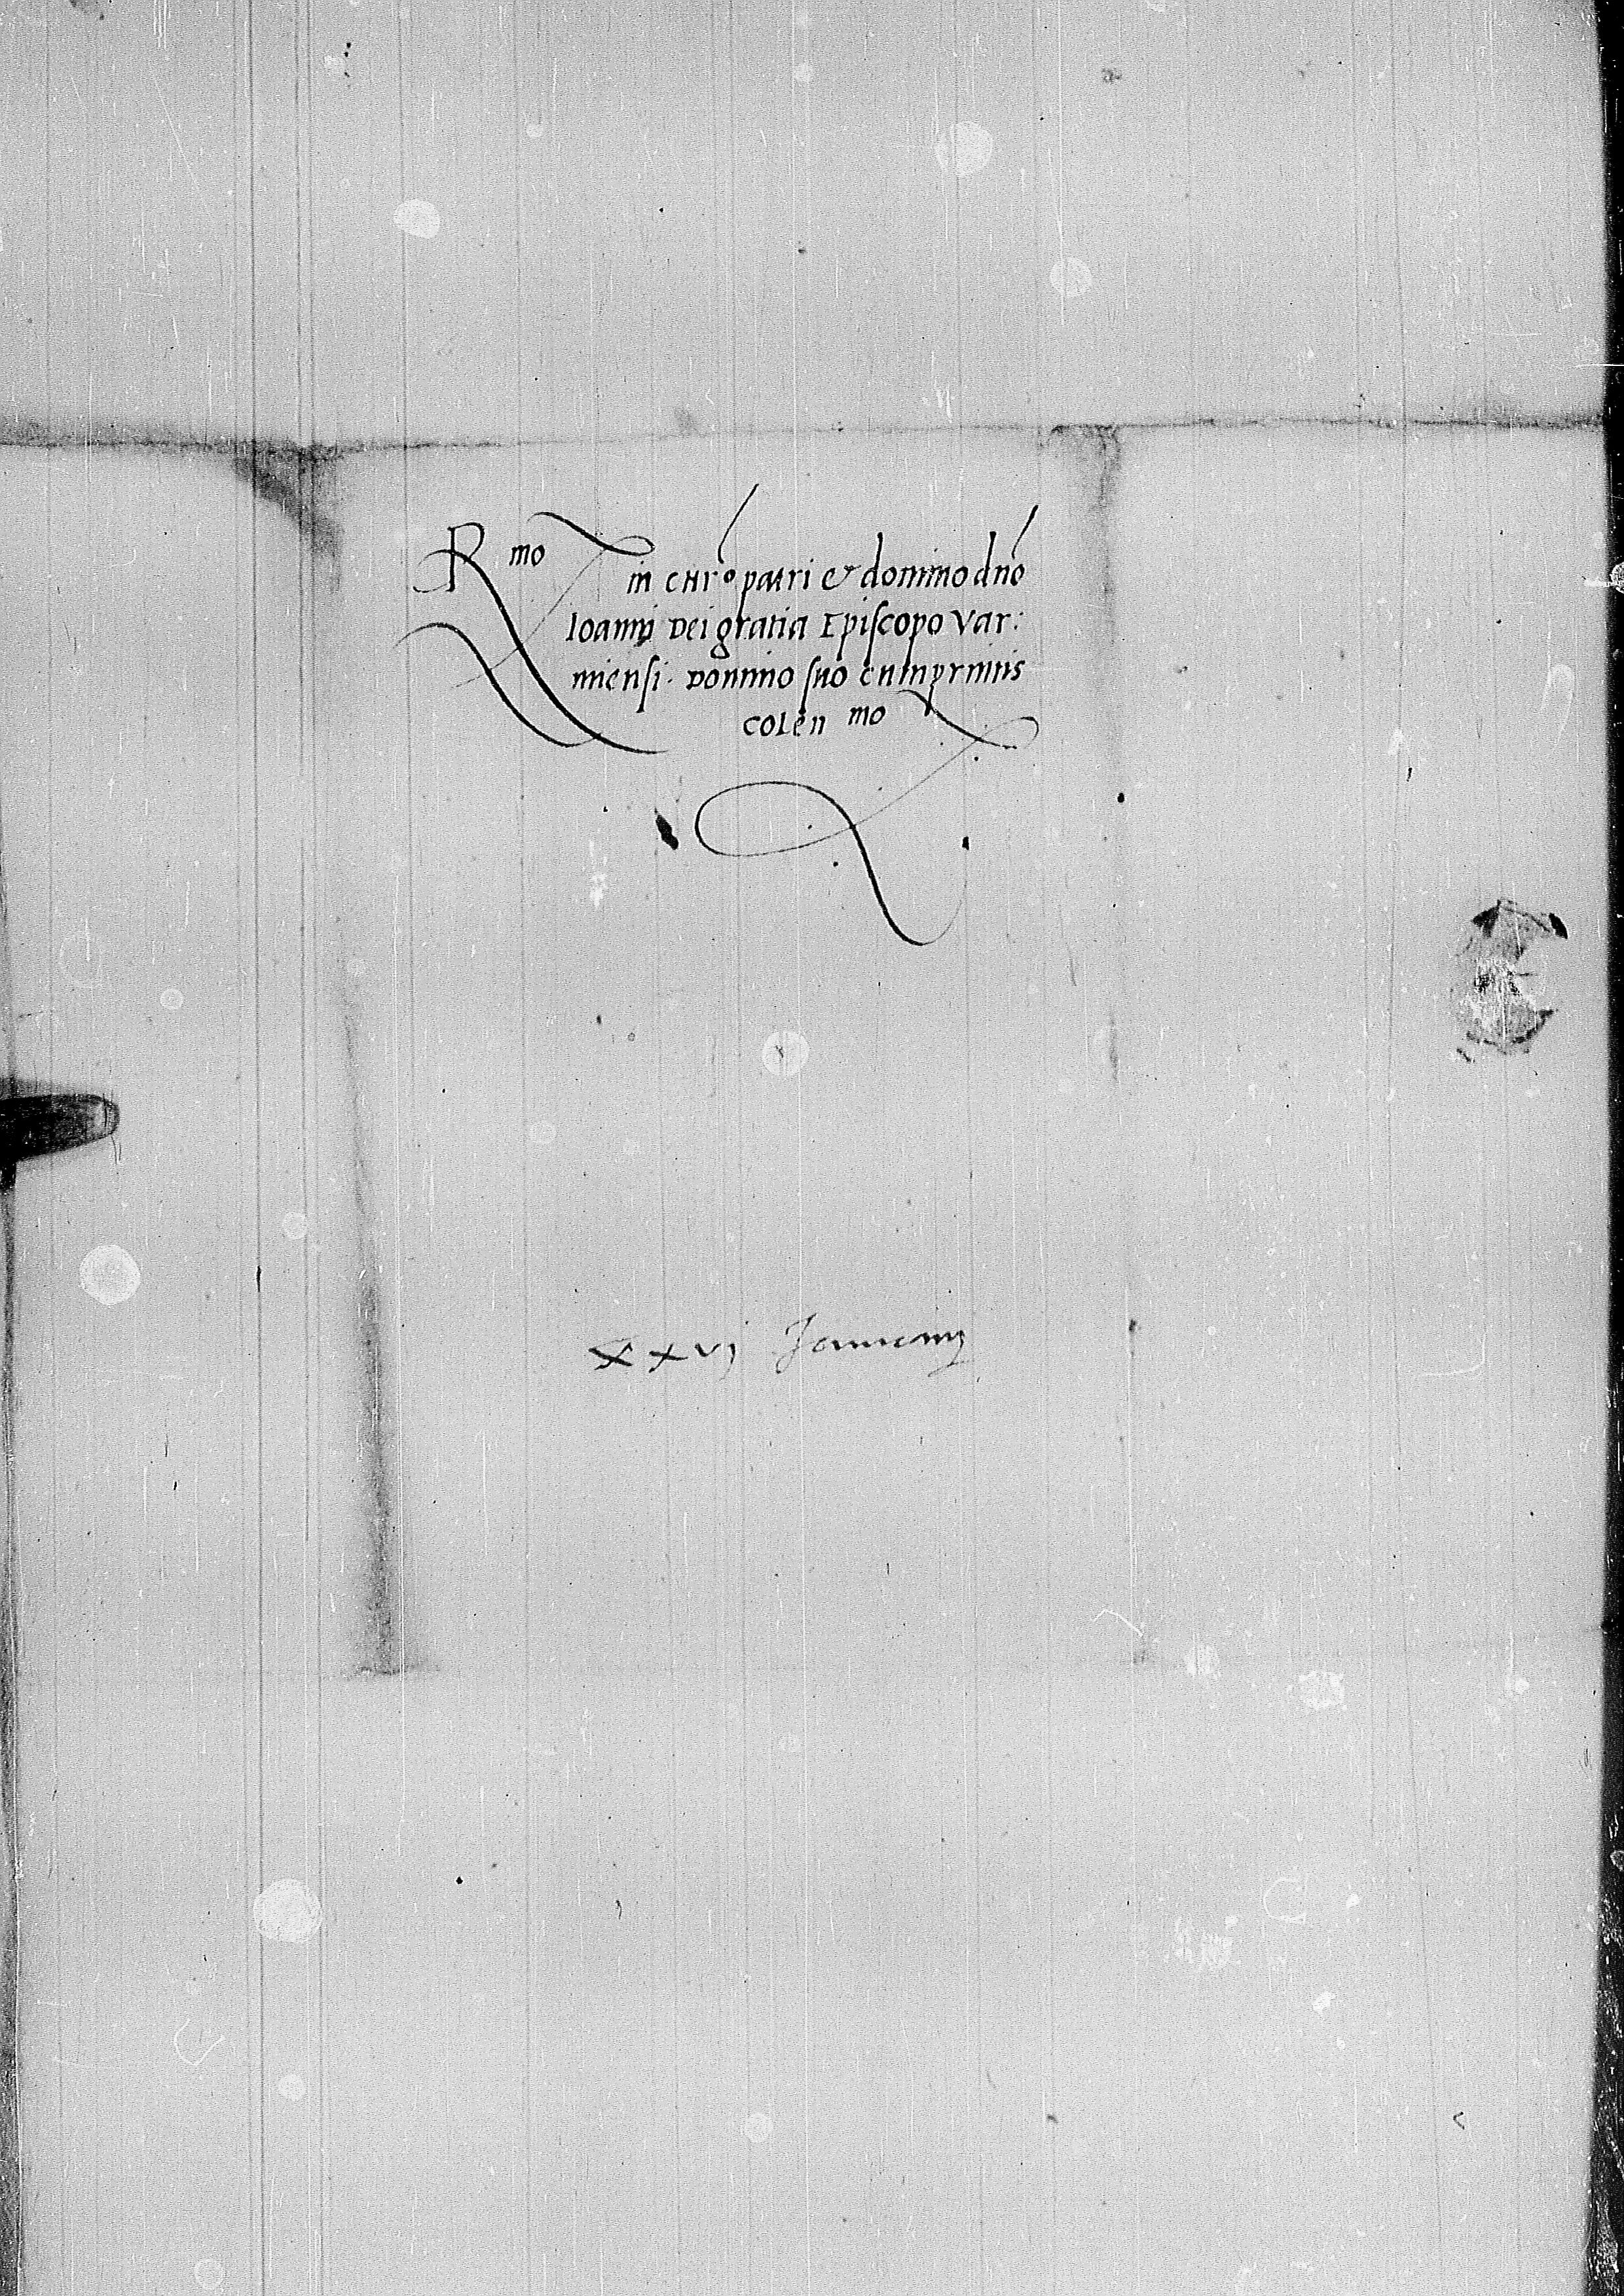 Rmo in chro patri et domino dno
Ioanni Dei gratia Episcopo Var:
miensi. Domino suo cumprimis
colen mo
xxvj Januarij